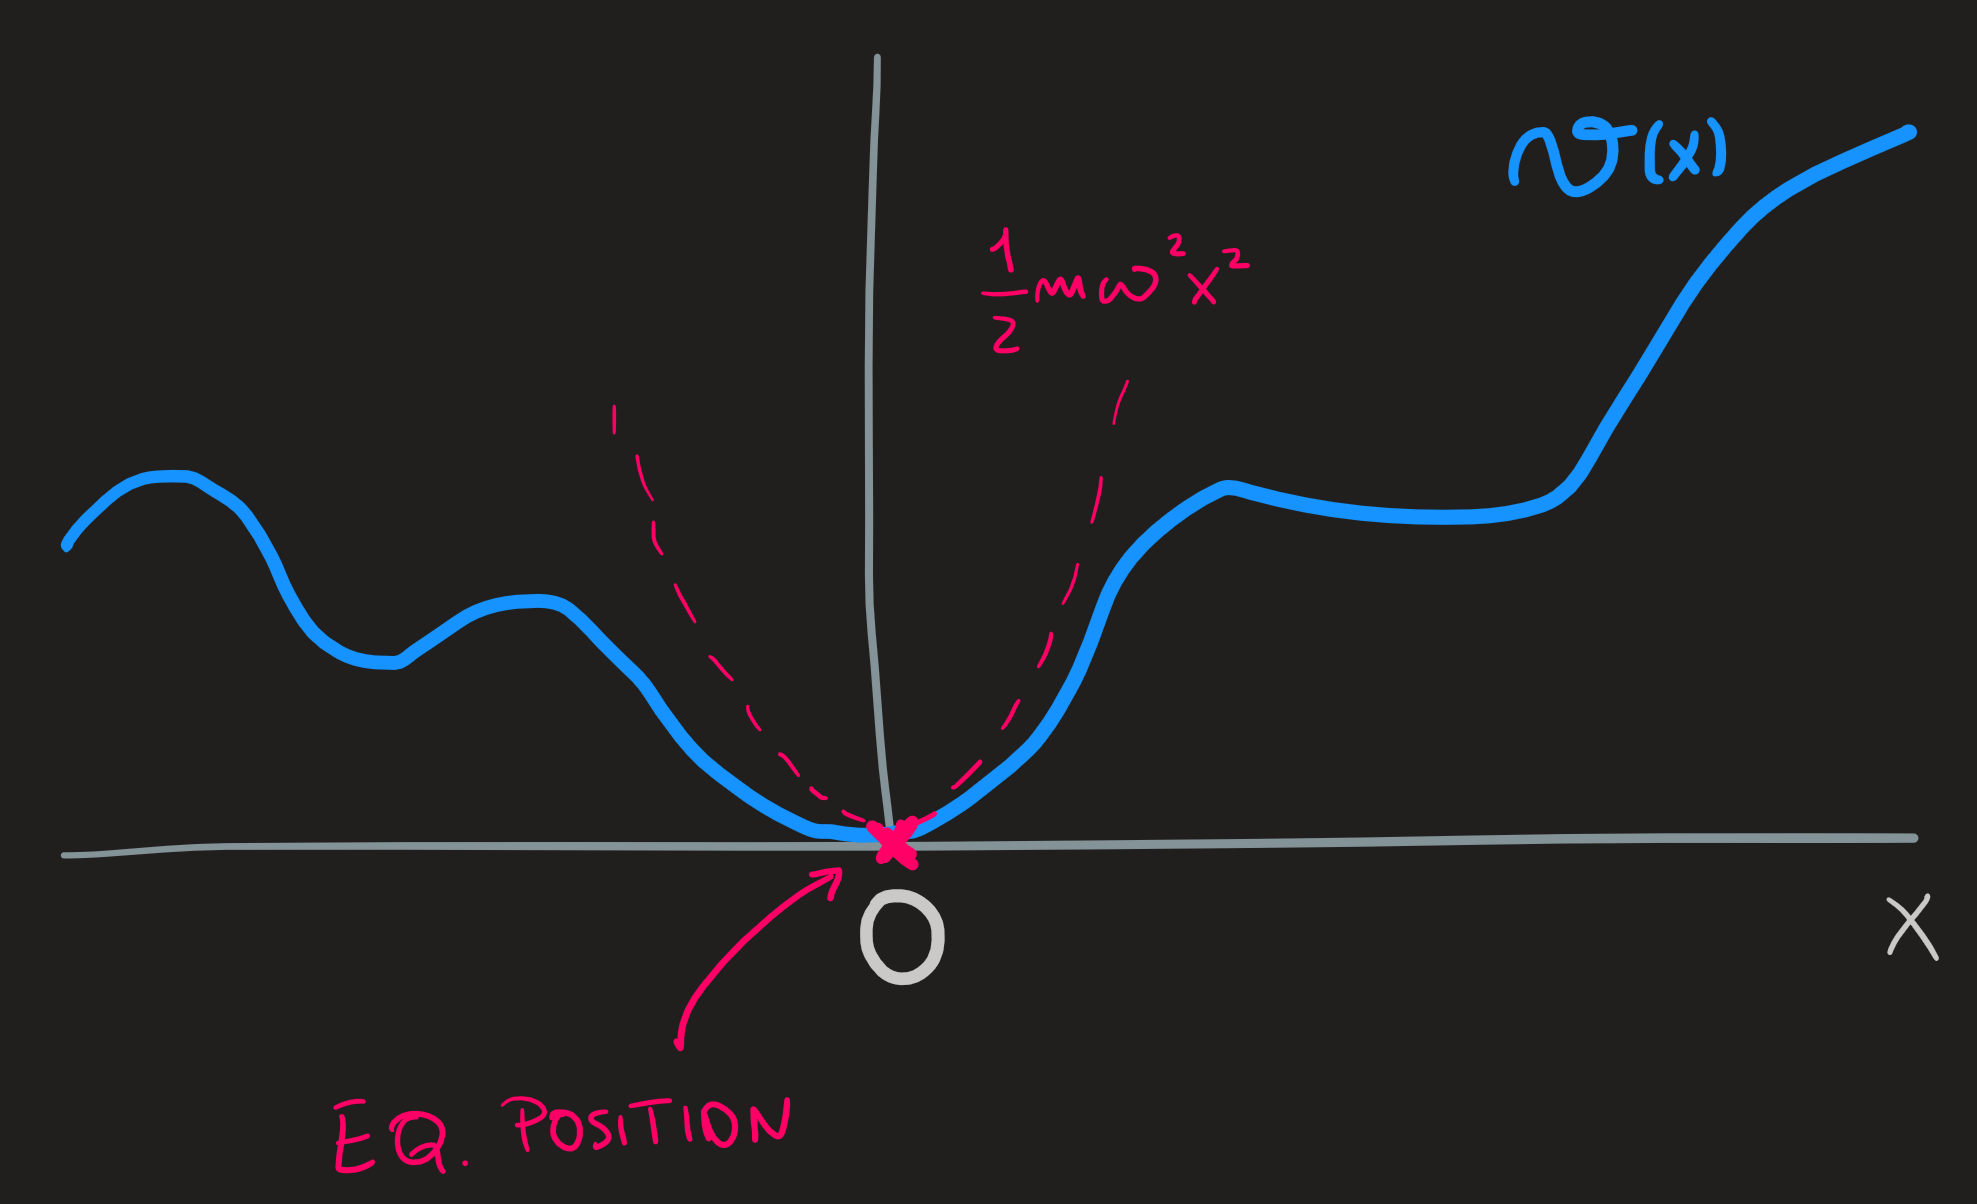 𝒱(x)
1/2 mω²x²
O
X
EQ. POSITION